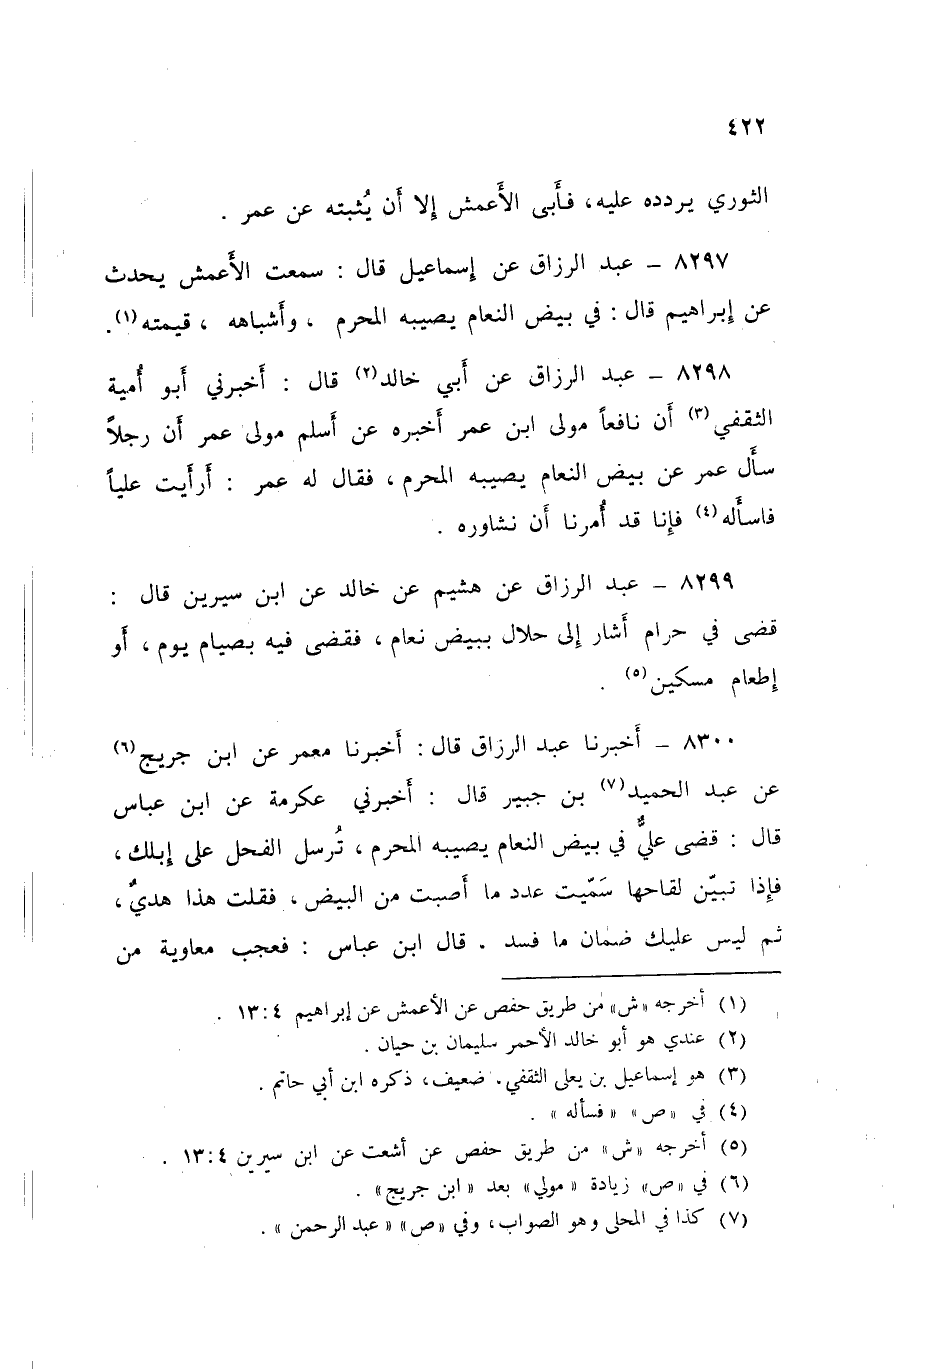 ٤٢٢
الثوري يردده عليه، فأبى الأعمش إلا أن يُثبته عن عمر .
٨٢٩٧ – عبد الرزاق عن إسماعيل قال : سمعت الأعمش يحدث
عن إبراهيم قال : في بيض النعام يصيبه المحرم ، وأشباهه ، قيمته(١).
٨٢٩٨ – عبد الرزاق عن أبي خالد(٢) قال : أخبرني أبو أُمية
الثقفي(٣) أن نافعاً مولى ابن عمر أخبره عن أسلم مولى عمر أن رجلاً
سأل عمر عن بيض النعام يصيبه المحرم ، فقال له عمر : أرأيت علياً
فاسأله(٤) فإنا قد أُمرنا أن نشاوره .
٨٢٩٩ – عبد الرزاق عن هشيم عن خالد عن ابن سيرين قال :
قضى في حرام أشار إلى حلال ببيض نعام ، فقضى فيه بصيام يوم ، أو
إطعام مسكين(٥) .
٨٣٠٠ – أخبرنا عبد الرزاق قال : أخبرنا معمر عن ابن جريج(٦)
عن عبد الحميد(٧) بن جبير قال : أخبرني عكرمة عن ابن عباس
قال : قضى عليٌّ في بيض النعام يصيبه المحرم ، تُرسل الفحل على إبلك ،
فإذا تبيّن لقاحها سَمّيت عدد ما أصبت من البيض ، فقلت هذا هديٌ ،
ثم ليس عليك ضمان ما فسد . قال ابن عباس : فعجب معاوية من
(١) أخرجه «ش» من طريق حفص عن الأعمش عن إبراهيم ٤ :١٣ .
(٢) عندي هو أبو خالد الأحمر سليمان بن حيان .
(٣) هو إسماعيل بن يعلى الثقفي. ضعيف، ذكره ابن أبي حاتم .
(٤) في «ص» « فسأله » .
(٥) أخرجه «ش» من طريق حفص عن أشعت عن ابن سيرين ٤ :١٣ .
(٦) في «ص» زيادة «مولي» بعد « ابن جريج» .
(٧) كذا في المحلى وهو الصواب، وفي «ص» « عبد الرحمن » .